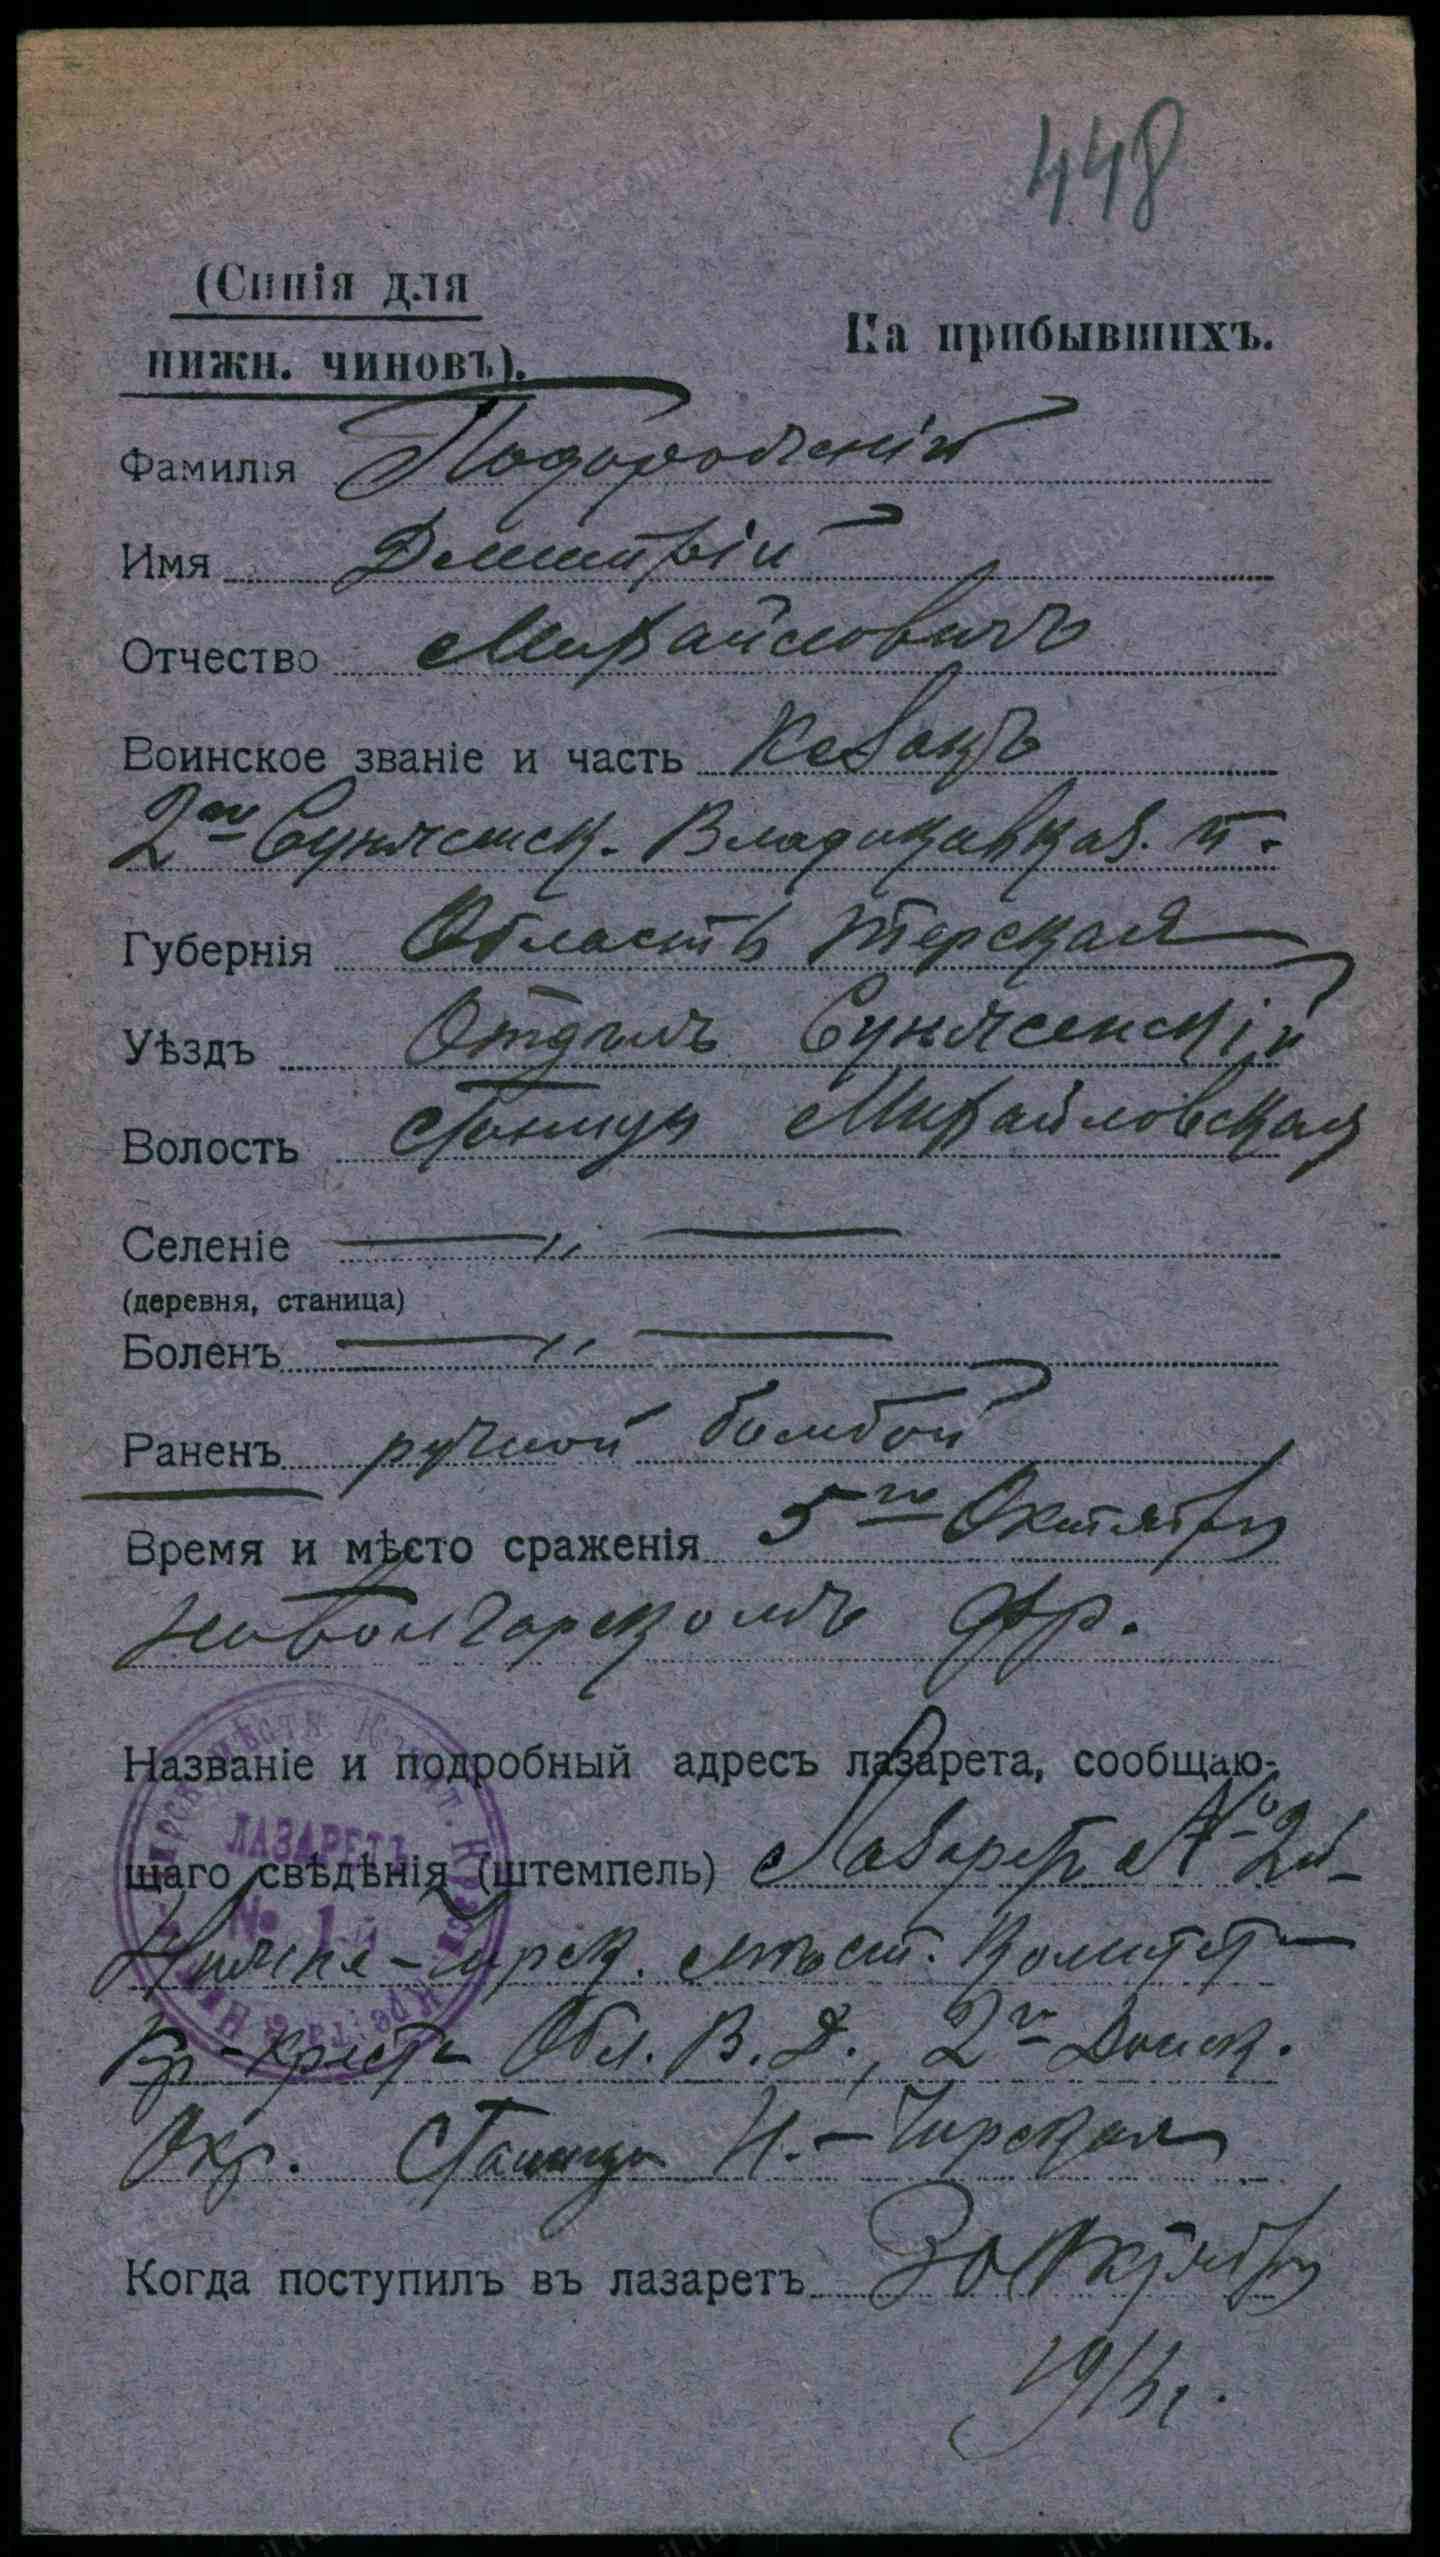 448
(Синія для
нижн. чиновъ).
На прибывшихъ.
Фамилія
Имя Дмитрій
Отчество Михайловичъ
Воинское званіе и часть Казакъ
2го Сунженск. Владикавказ. п.
Губернія Область Терская
Уѣздъ Отдѣлъ Сунженскій
Волость Станица Михайловская
Селеніе — „ —
(деревня, станица)
Боленъ — „ —
Раненъ ручной бомбой
Время и мѣсто сраженія 5го Октября
на фр.
Названіе и подробный адресъ лазарета, сообщаю-
щаго свѣдѣнія (штемпель) Лазаретъ № 2й
Нижне-Чирск. мѣст. Комитет
Кр-Креста Обл. В. Д., 2й Донск.
Окр. Станица Н.-Чирская
Когда поступилъ въ лазаретъ 30 Октября
ЛАЗАРЕТЪ
№ 1й